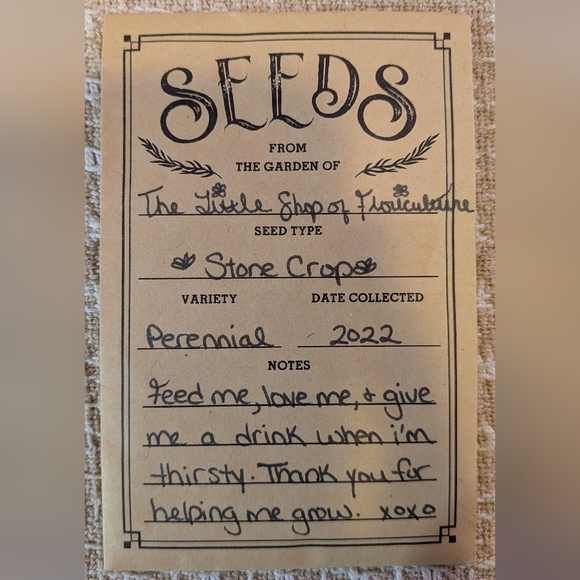 SEEDS
FROM
THE GARDEN OF
The Little Shop of Floriculture
SEED TYPE
Stone Crop
VARIETY DATE COLLECTED
Perennial 2022
NOTES
Feed me, love me, & give
me a drink when i'm
thirsty. Thank you for
helping me grow. xoxo